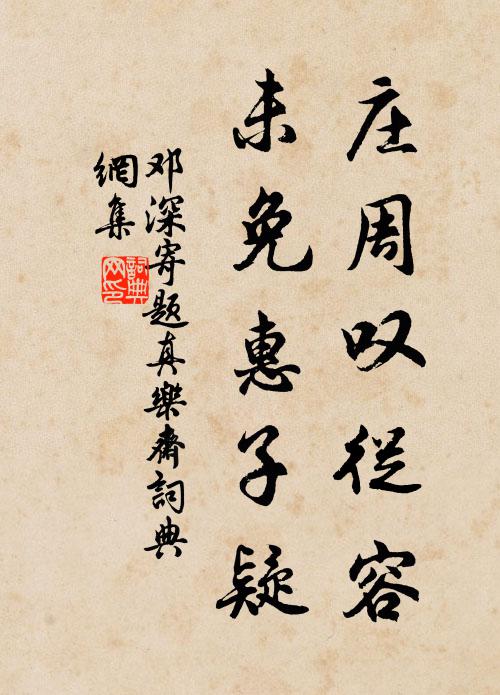 庄周叹从容
未免惠子疑
邓深寄题真樂齋詞典
網集
詞典
网印